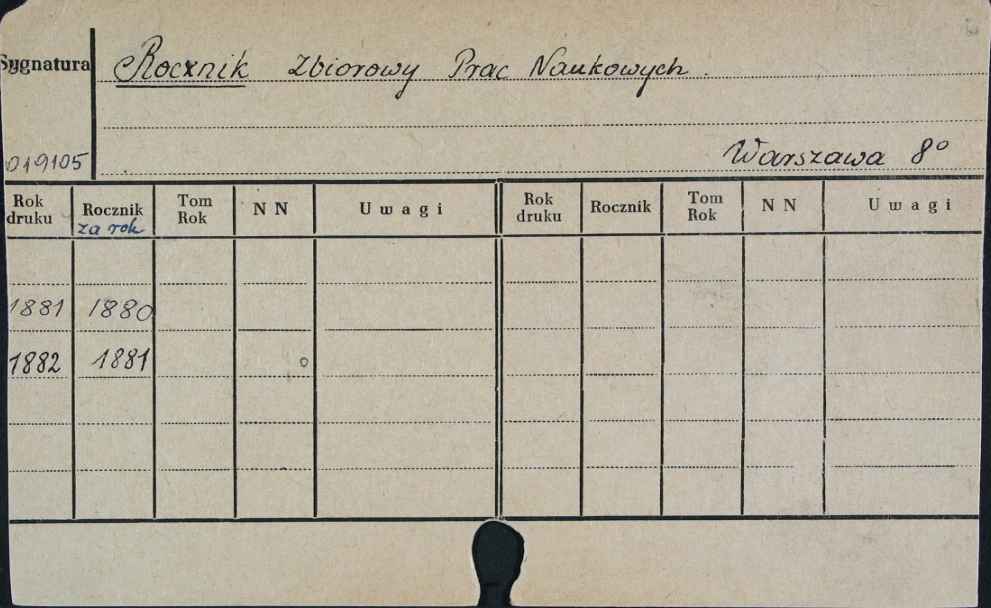 Sygnatura Rocznik Zbiorowy Prac Naukowych.
019105 Warszawa 8º
Rok druku Rocznik za rok Tom Rok NN Uwagi Rok druku Rocznik Tom Rok NN Uwagi
1881 1880
1882 1881